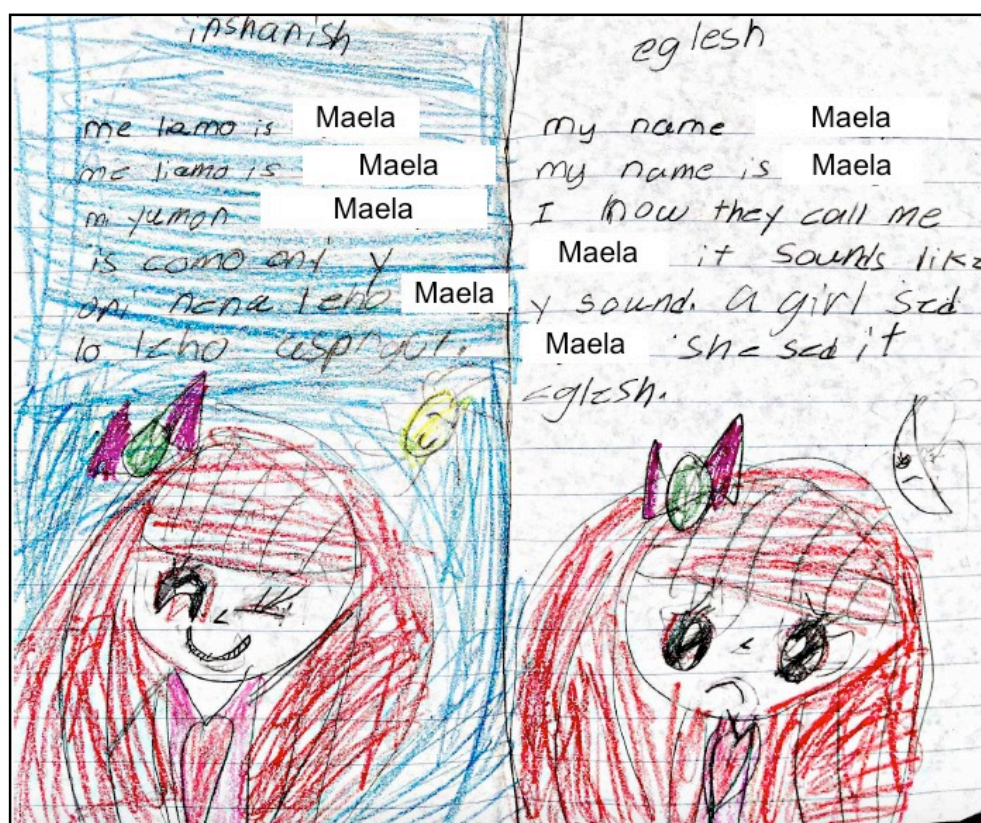 inshanish
me liamo is Maela
me liamo is Maela
m yumon Maela
is como ani y
ani nena leho Maela
lo leho
eglesh
my name Maela
my name is Maela
I know they call me
Maela it sounds like
y sound. a girl sed
Maela she sed it
eglesh.